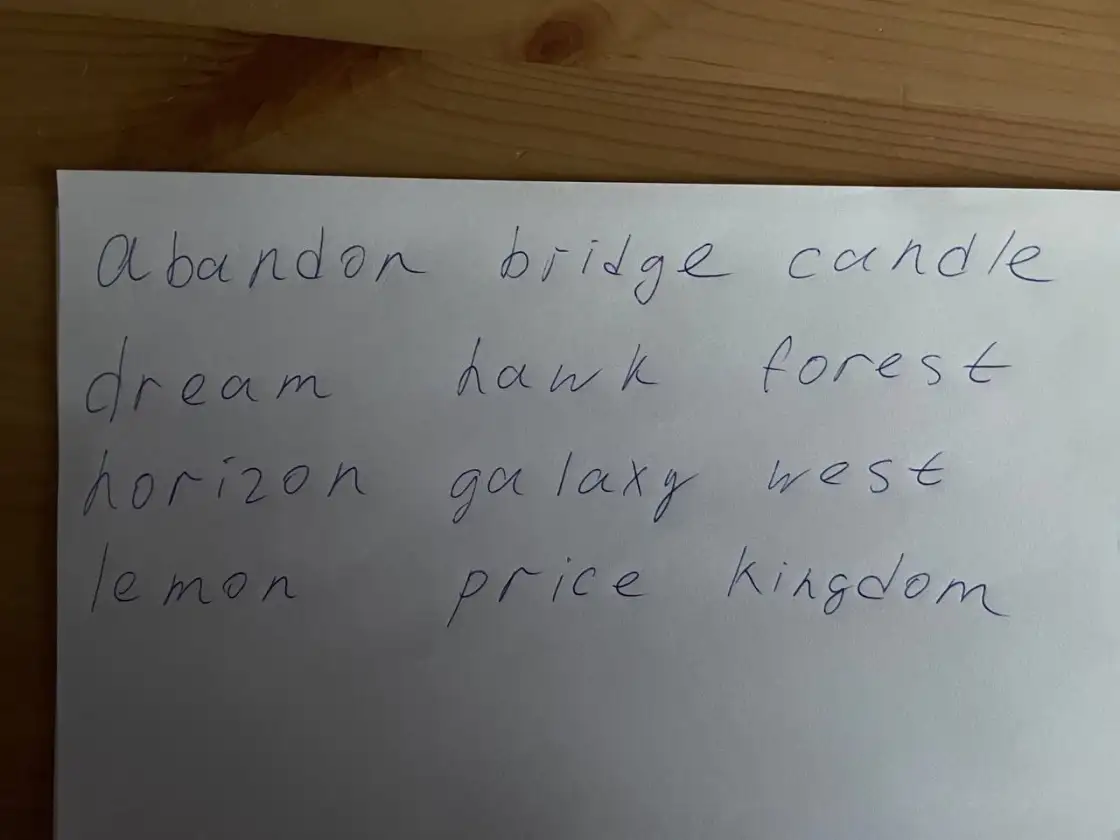 abandon bridge candle
dream hawk forest
horizon galaxy west
lemon price kingdom